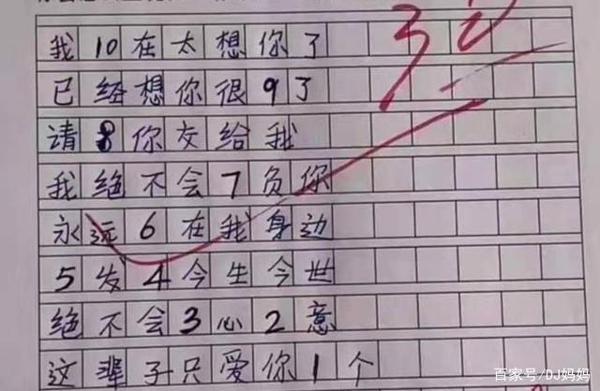 我10在太想你了
已经想你很9了
请8你交给我
我绝不会7负你
永远6在我身边
5发4今生今世
绝不会3心2意
这辈子只爱你1个
百家号/DJ妈妈